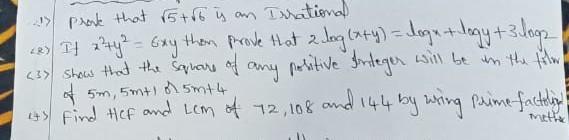 (1) Prove that √5+√6 is an Irrational
(2) If x²+y² = 6xy then prove that 2 log (x+y) = logx+logy+3log2
(3) show that the square of any positive Integer will be in the form
of 5m, 5m+1 or 5m+4
(4) Find HCF and LCM of 72, 108 and 144 by using Prime-factorization
method